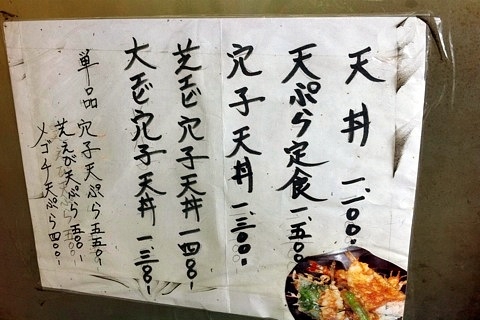 天丼 一、一〇〇-
天ぷら定食 一、五〇〇-
穴子天丼 一、三〇〇-
芝エビ穴子天丼 一四〇〇-
大エビ穴子天丼 一、三〇〇-
単品 穴子天ぷら 五五〇-
芝えび天ぷら 五〇〇-
メゴチ天ぷら 四〇〇-